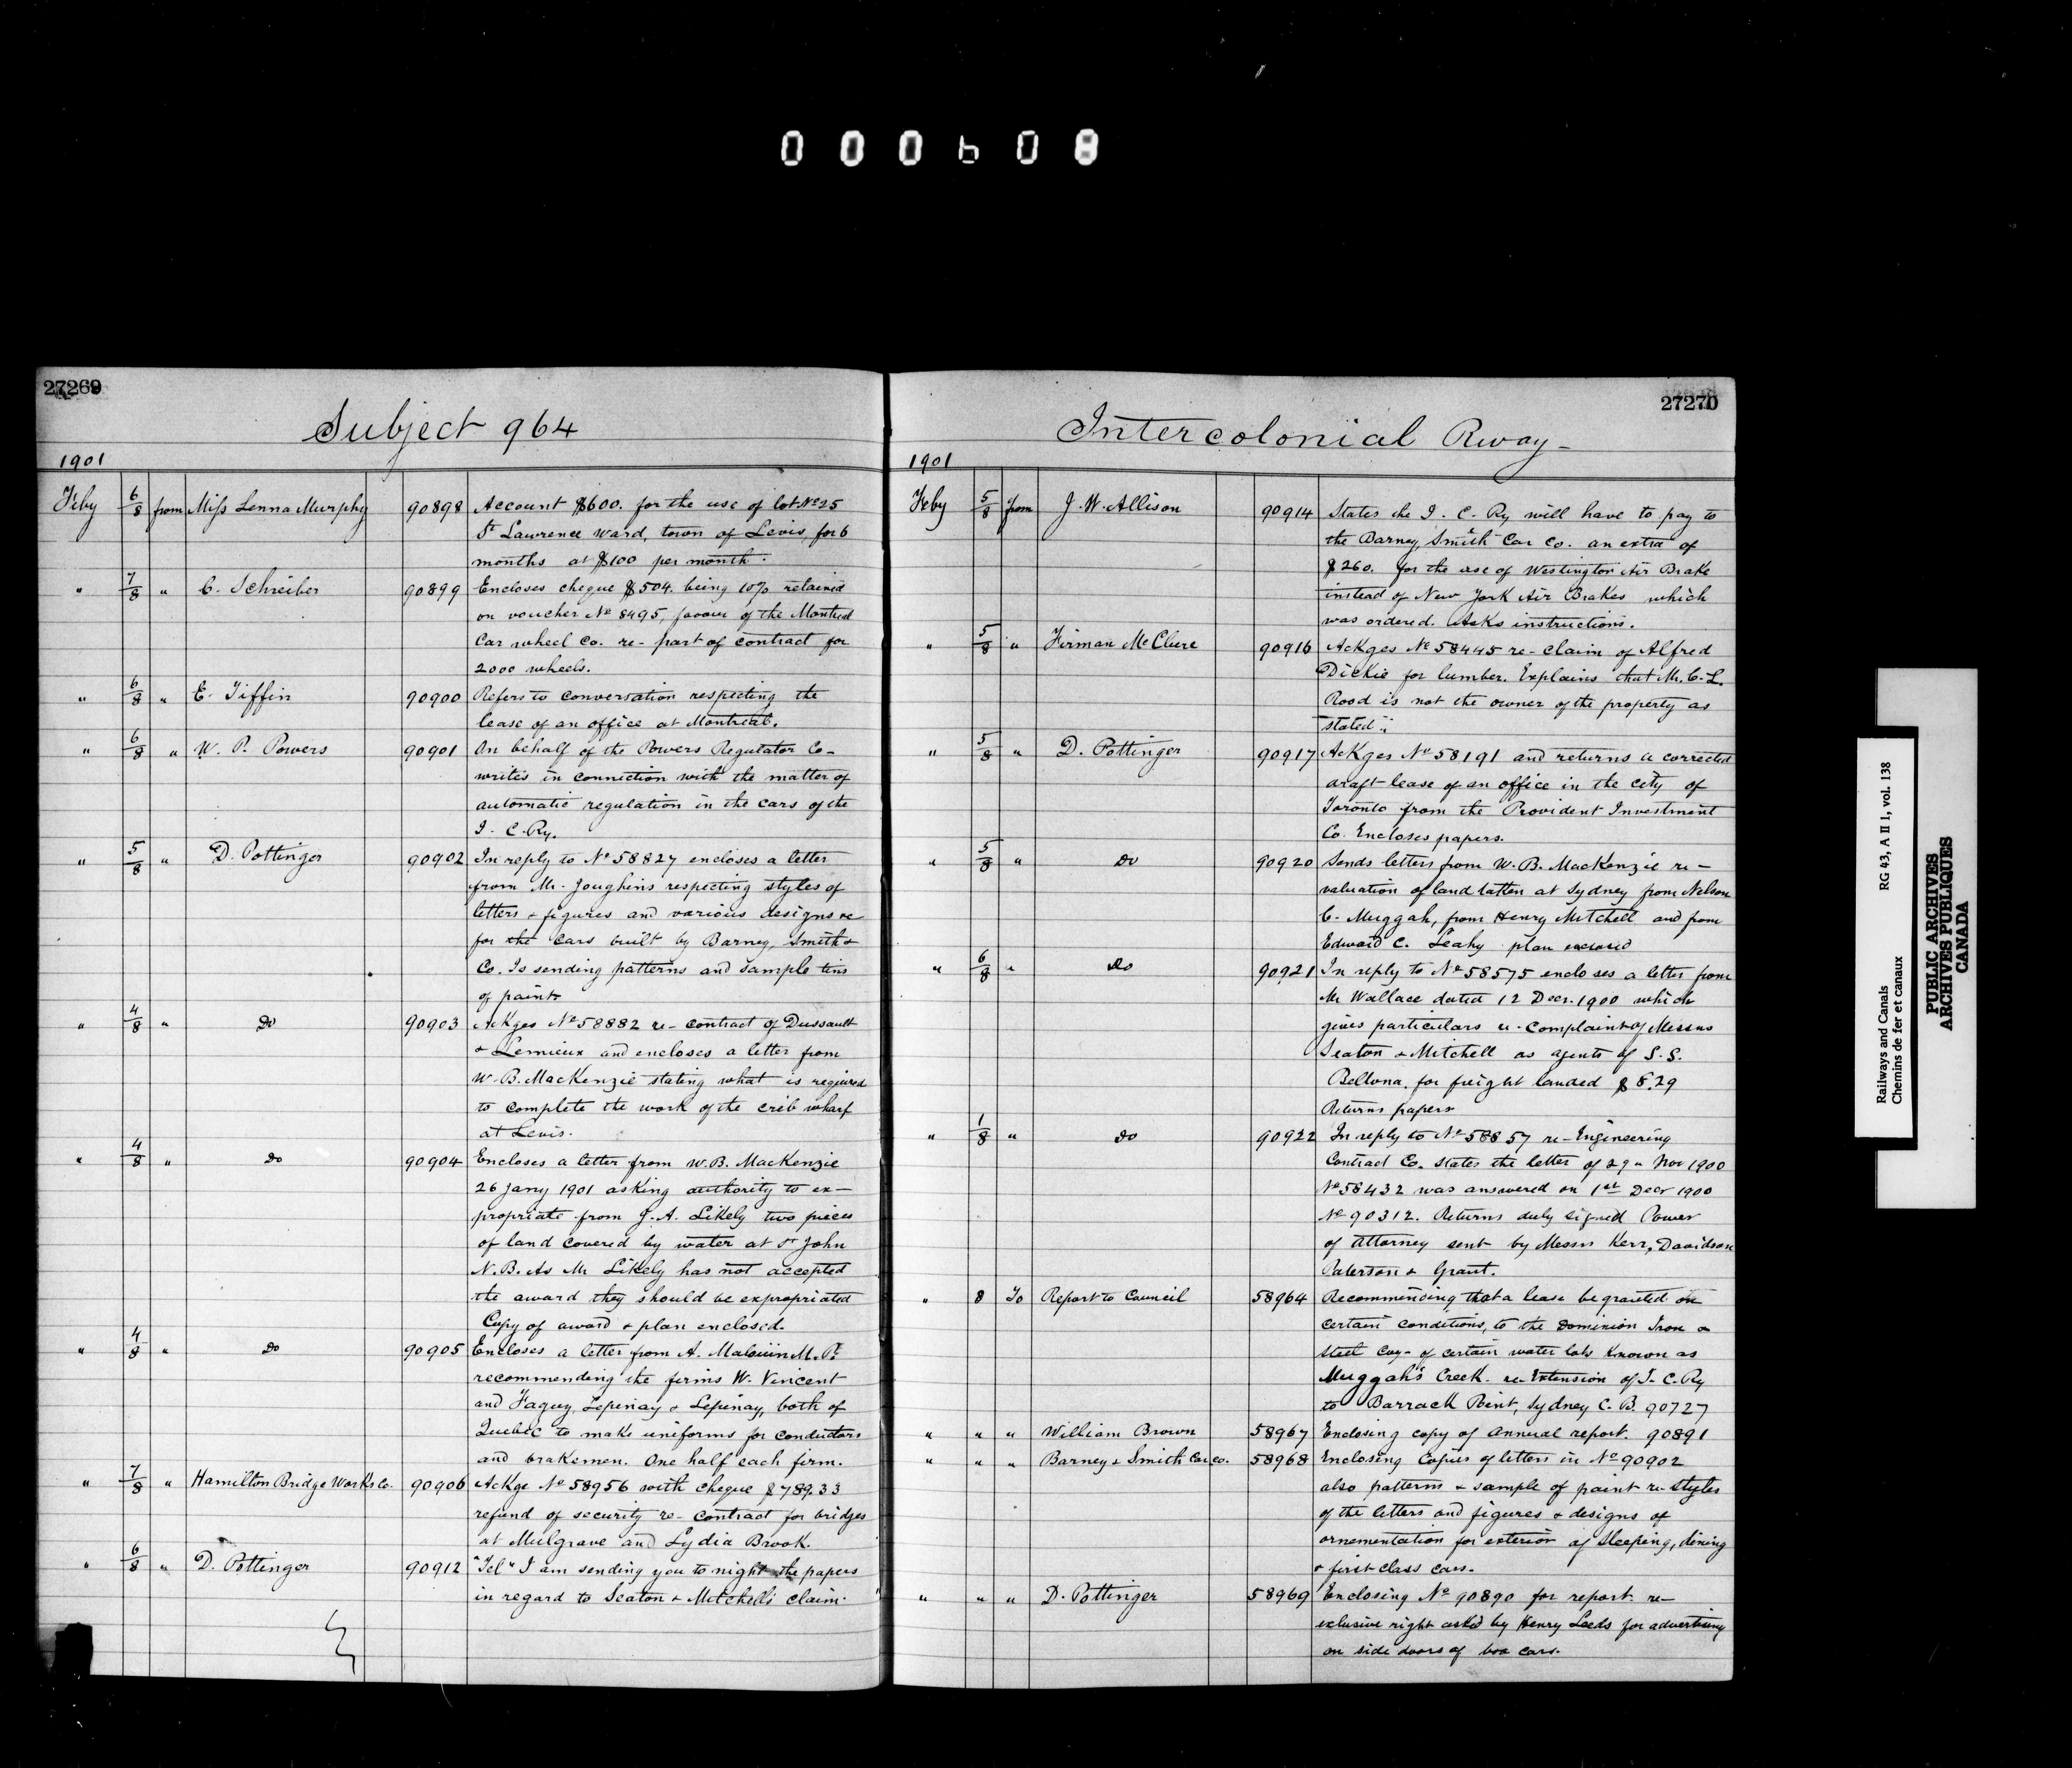 000608
27269
Subject 964
1901
Feby 6/8 from Miss Lenna Murphy 90898 Account $600. for the use of lot No 25
St Lawrence Ward, town of Levis, for 6
months at $100 per month.
" 7/8 " C. Schreiber 90899 Encloses cheque $504. being 10% retained
on voucher No 8495, favour of the Montreal
Car wheel Co. re- part of contract for
2000 wheels.
" 6/8 " E. Tiffin 90900 Refers to conversation respecting the
lease of an office at Montreal.
" 6/8 " W. P. Powers 90901 On behalf of the Powers Regulator Co-
writes in connection with the matter of
automatic regulation in the cars of the
I. C. Ry.
" 5/8 " D. Pottinger 90902 In reply to No 58827 encloses a letter
from Mr. Joughins respecting styles of
letters & figures and various designs re
for the cars built by Barney, Smith &
Co. Is sending patterns and sample tins
of paint
" 4/8 " Do 90903 Ackges No 58882 re- contract of Dussault
& Lemieux and encloses a letter from
W. B. MacKenzie stating what is required
to complete the work of the crib wharf
at Levis.
" 4/8 " Do 90904 Encloses a letter from W. B. MacKenzie
26 Jany 1901 asking authority to ex-
propriate from J. A. Likely two pieces
of land covered by water at St John
N. B. As Mr Likely has not accepted
the award they should be expropriated
Copy of award & plan enclosed.
" 4/8 " Do 90905 Encloses a letter from A. Malouin M. P.
recommending the firms W. Vincent
and Faguy, Lepinay & Lepinay, both of
Quebec to make uniforms for conductors
and brakemen. One half each firm.
" 7/8 " Hamilton Bridge Works Co. 90906 Ackge No 58956 with cheque $789.33
refund of security re- contract for bridges
at Mulgrave and Lydia Brook.
" 6/8 " D. Pottinger 90912 "Tel" I am sending you to night the papers
in regard to Seaton & Mitchell's claim. "
27270
Intercolonial Rway-
1901
Feby 5/8 from J. W. Allison 90914 States the I. C. Ry will have to pay to
the Barney, Smith Car Co. an extra of
$260. for the use of Westington Air Brake
instead of New York Air Brakes which
was ordered. Asks instructions.
" 5/8 " Firman McClure 90916 Ackges No 58445 re- claim of Alfred
Dickie for lumber. Explains that Mr. C. L.
Rood is not the owner of the property as
stated.
" 5/8 " D. Pottinger 90917 Ackges No 58191 and returns a corrected
draft lease of an office in the city of
Toronto from the Provident Investment
Co. Encloses papers.
" 5/8 " Do 90920 Sends letters from W. B. MacKenzie re-
valuation of land taken at Sydney from Nelson
C. Muggah, from Henry Mitchell and from
Edward C. Leahy plan enclosed
" 6/8 " Do 90921 In reply to No 58575 encloses a letter from
Mr Wallace dated 12 Decr. 1900 which
gives particulars re- complaint of Messrs
Seaton & Mitchell as agents of S. S.
Bellona. for freight landed $8.29
Returns papers
" 1/8 " Do 90922 In reply to No 58857 re- Engineering
Contract Co. states the letter of 29 " Nov 1900
No 58432 was answered on 1st Decr 1900
No 90312. Returns duly signed Power
of Attorney sent by Messrs Kerr, Davidson
Paterson & Grant.
" 8 To Report to Council 58964 Recommending that a lease be granted on
certain conditions, to the Dominion Iron &
Steel Coy- of certain water lots known as
Muggah's Creek. re- Extension of I. C. Ry
to Barrack Point, Sydney C. B. 90727
" " " William Brown 58967 Enclosing copy of annual report. 90891
" " " Barney & Smith Car co. 58968 Enclosing Copies of letters in No 90902
also patterns & sample of paint re- styles
of the letters and figures & designs of
ornementation for exterior of sleeping, dining
& first class cars.
" " " D. Pottinger 58969 Enclosing No 90890 for report re-
exclusive right asked by Henry Leeds for advertising
on side doors of box cars.
Railways and Canals RG 43, A II 1, vol. 138
Chemins de fer et canaux
PUBLIC ARCHIVES
ARCHIVES PUBLIQUES
CANADA